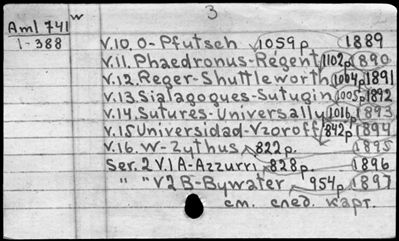 3
w
Aml 741
1-388
V.10. O-Pfutsch 1059p. 1889
V.11. Phaedronus-Regent 1102p 1890
V.12. Reger-Shuttleworth 1004p 1891
V.13. Sialagogues-Sutugin 1005p 1892
V.14. Sutures-Universally 1016p. 1893
V.15 Universidad-Vzoroff 842p 1894
V.16. W-Zythus 822p. 1895
Ser. 2 V.1 A-Azzurri 828p. 1896
" " V2 B-Bywater 954p 1897
см. след. карт.